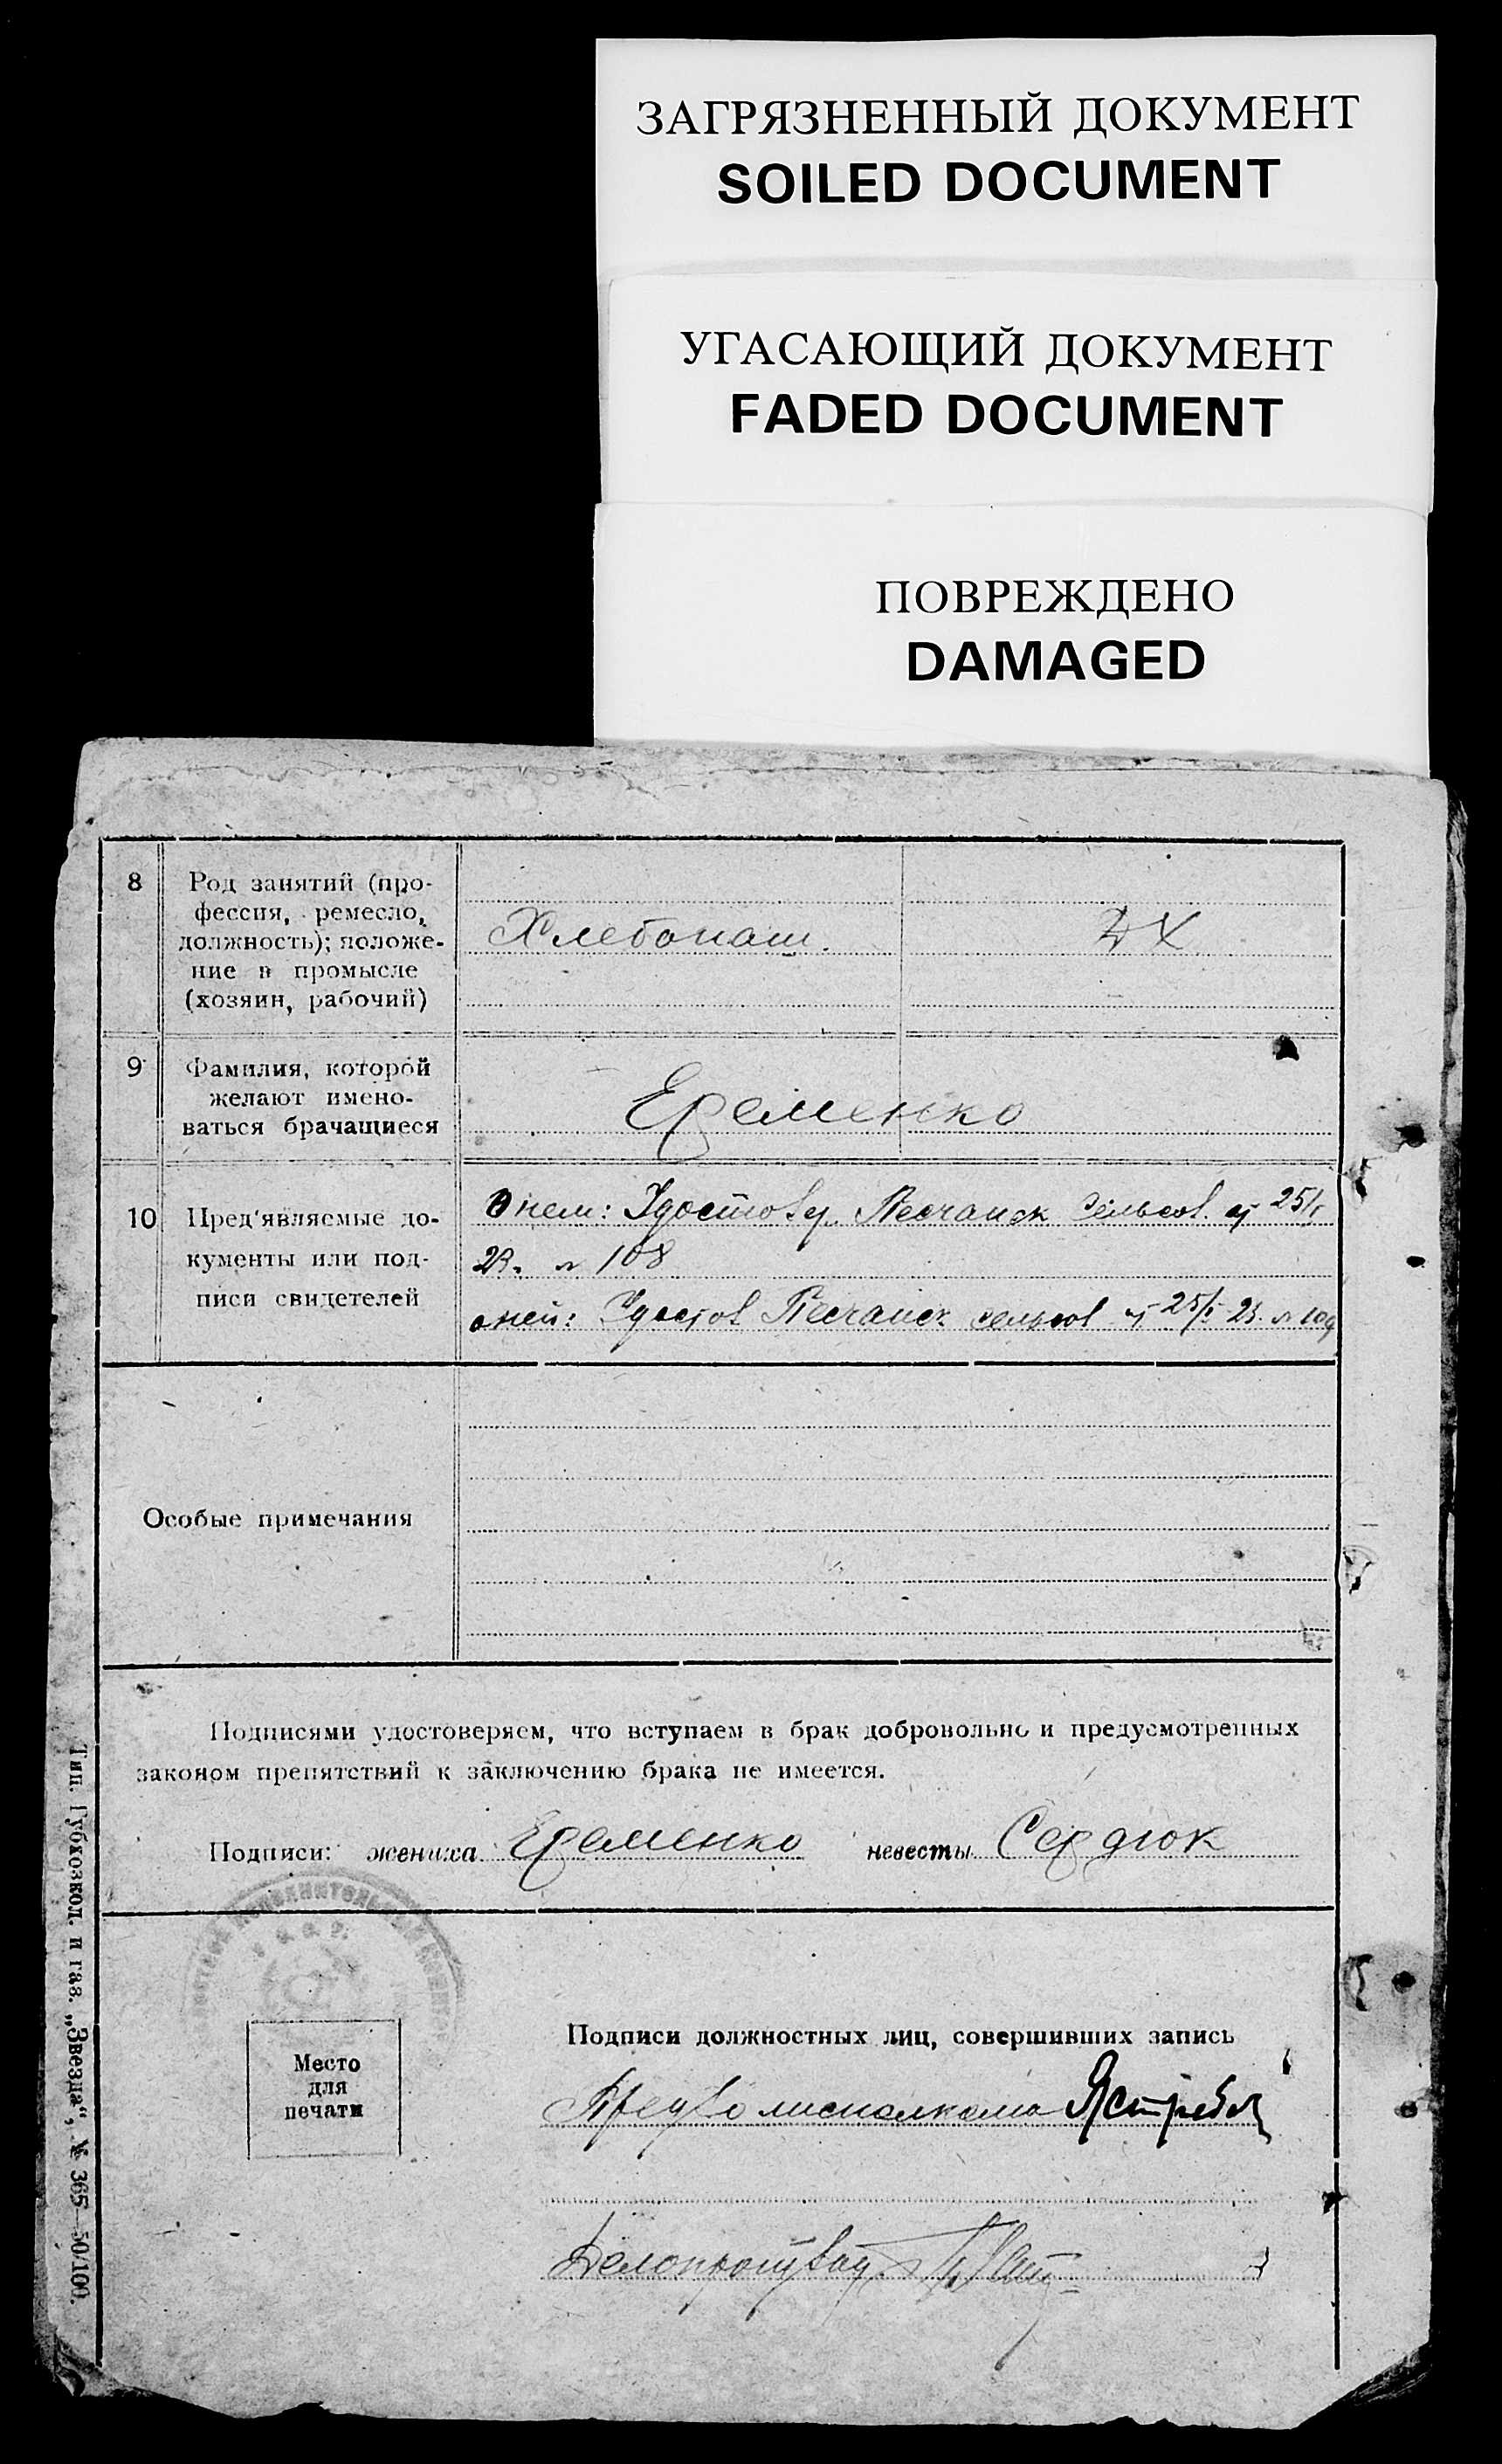 ЗАГРЯЗНЕННЫЙ ДОКУМЕНТ
SOILED DOCUMENT
УГАСАЮЩИЙ ДОКУМЕНТ
FADED DOCUMENT
ПОВРЕЖДЕНО
DAMAGED
8 Род занятий (про-
фессия, ремесло,
должность); положе-
ние в промысле
(хозяин, рабочий)
Хлебопаш. ДХ
9 Фамилия, которой
желают имено-
ваться брачащиеся
Еременко
10 Пред'являемые до-
кументы или под-
писи свидетелей
О нем: Удостовер. Песчанск Сельсов. от 25/I
23. № 108
о ней: Удостов Песчанск сельсов от 25/I 23. № 109
Особые примечания
Подписями удостоверяем, что вступаем в брак добровольно и предусмотренных
законом препятствий к заключению брака не имеется.
Подписи: жениха Еременко невесты Сердюк
ИСПОЛНИТЕЛЬНЫЙ КОМИТЕТ
Место
для
печати
Подписи должностных лиц, совершивших запись
Предволисполкома
Делопроизвод
Тип. Губхозкол. и газ. „Звезда“, № 365—50/100.